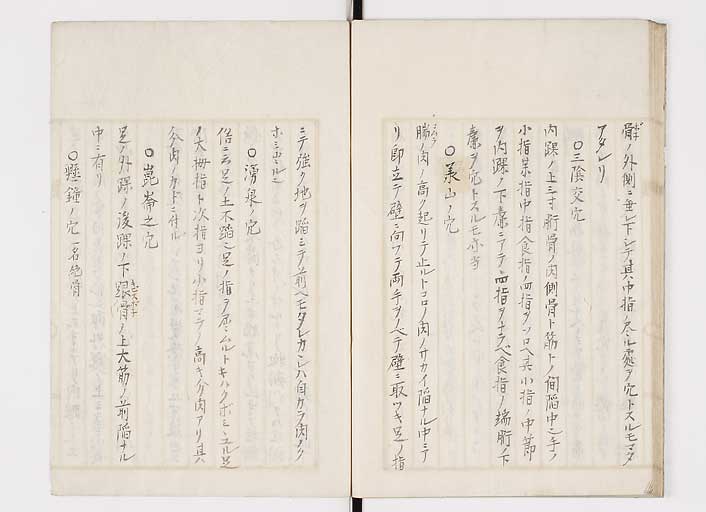 骨ノ外側ニ垂レ下シテ其中指ノ尽ル處ヲ穴トスルモマタ
アタレリ
〇三陰交穴
内踝ノ上三寸胻骨ノ内側骨ト筋トノ間陥中也手ノ
小指茶指中指食指ノ四指ヲソロヘ其小指ノ中節
ヲ内踝ノ下廉ニアテ四指ヲナラベ食指ノ端胻ノ下
廉ヲ穴トスルモ亦当
〇承山ノ穴
腨ノ肉ノ高ク起リテ止ルトコロノ肉ノサカイ陥ナル中ニテ
即立テ壁ニ向フテ両手ヲノベテ壁ニ取ツキ足ノ指
ニテ強ク地ヲ踏ミテ前ヘモタレカヽレハ自カラ肉タク
〇湧泉ノ穴
俗ニ云足ノ土不踏也足ノ指ヲ屈ムルトキハクボミミユル足
ノ大拇指ト次指ヨリ小指マテノ高キ分肉アリ其
分肉ノカドニ付ル
〇崑崙之穴
足ノ外踝ノ後踝ノ下跟骨ノ上大筋ノ前陥ナル
中ニ有リ
〇懸鐘ノ穴 一名絶骨